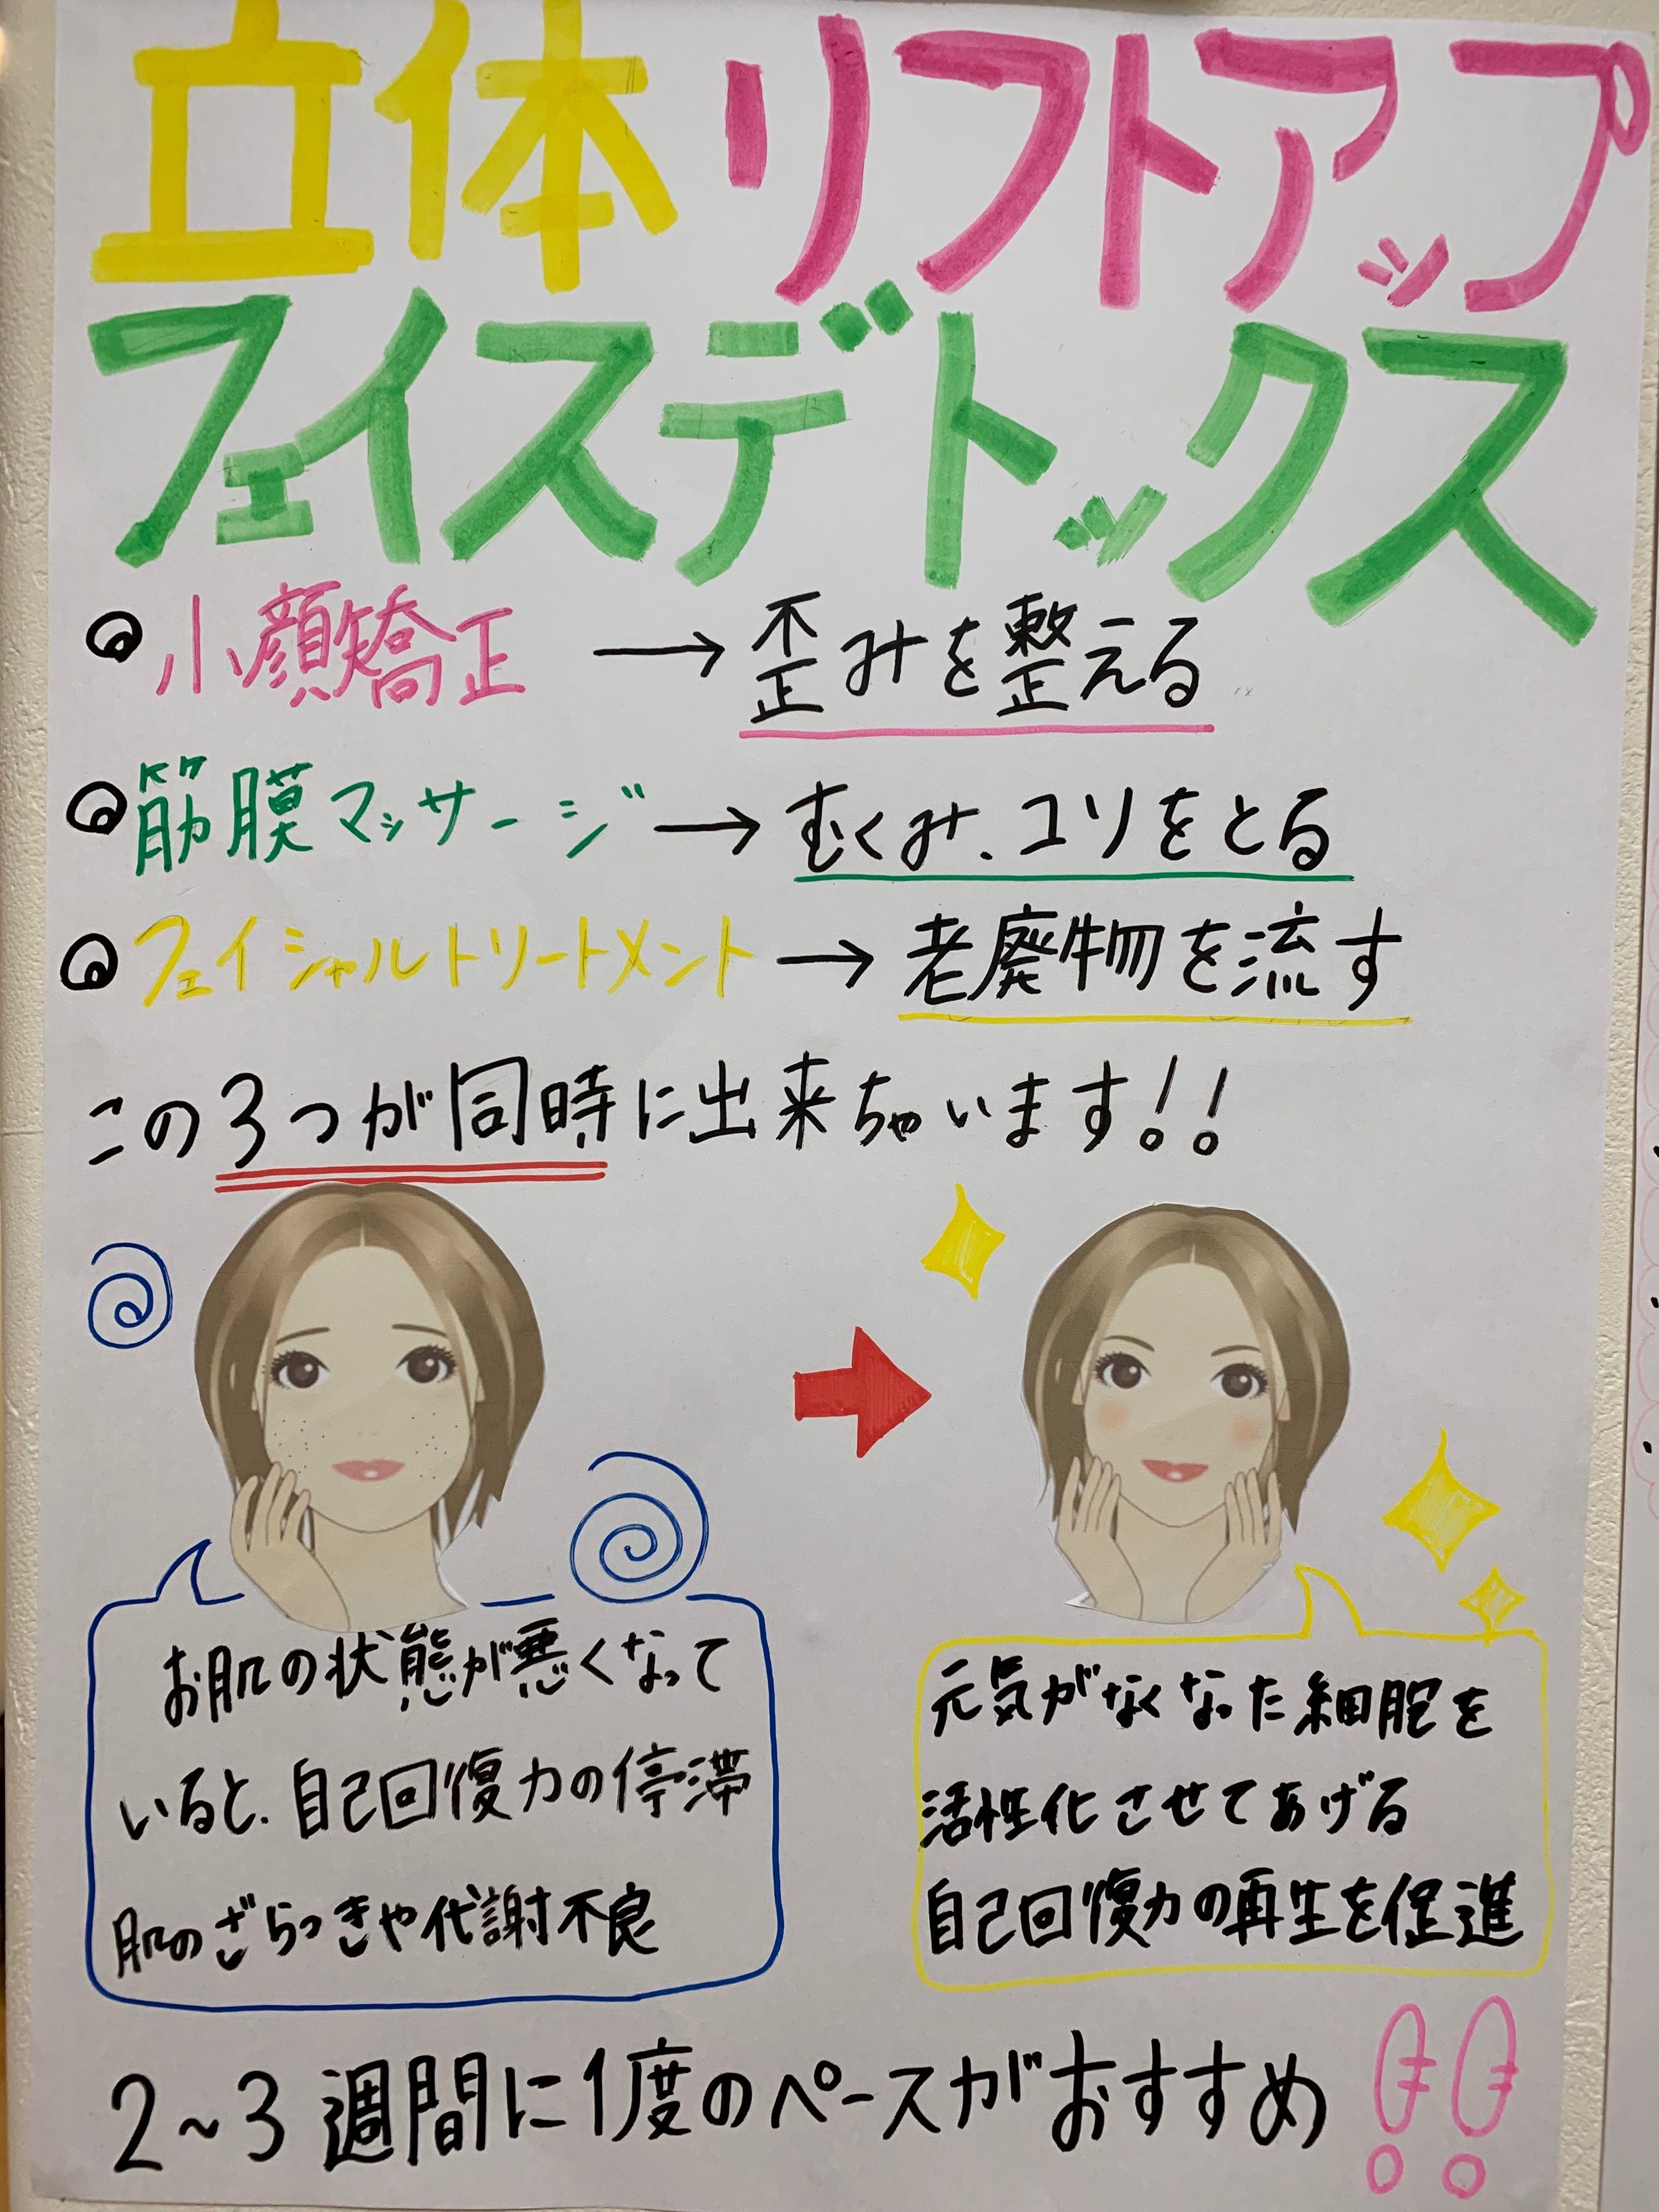 立体リフトアップ
フェイスデトックス
小顔矯正 → 歪みを整える
筋膜マッサージ → むくみ、コリをとる
フェイシャルトリートメント → 老廃物を流す
この3つが同時に出来ちゃいます!!
お肌の状態が悪くなって
いると、自己回復力の停滞
肌のざらっきや代謝不良
元気がなくなった細胞を
活性化させてあげる
自己回復力の再生を促進
2~3週間に1度のペースがおすすめ!!